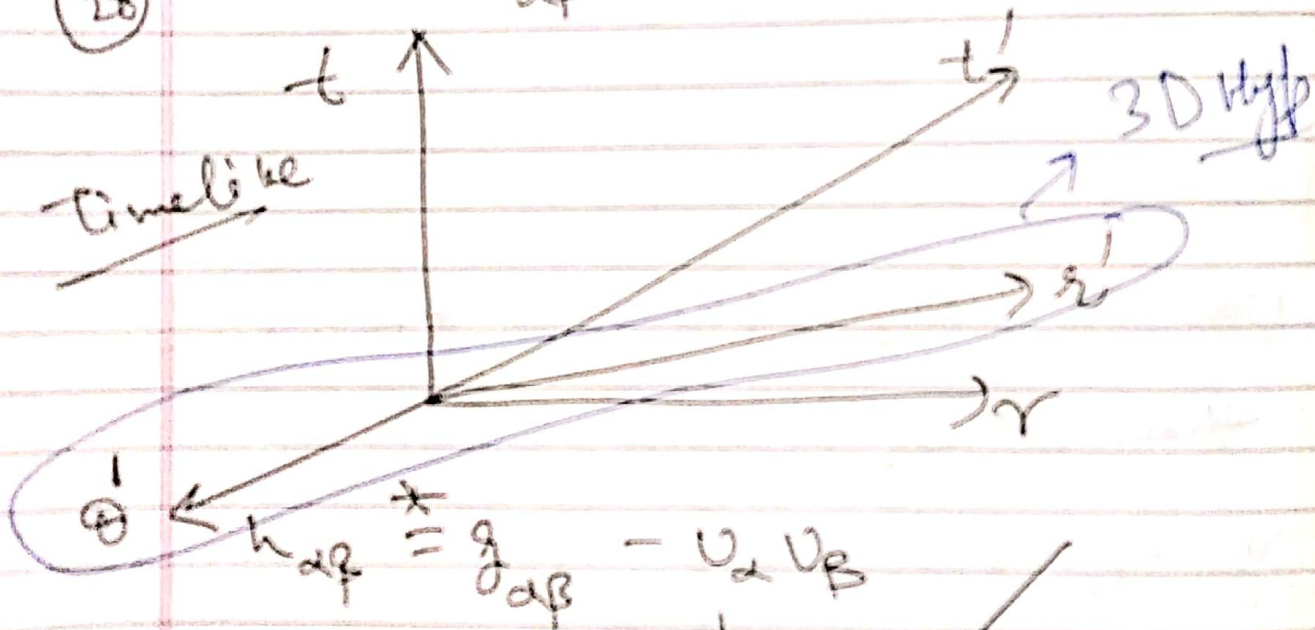 28
t
t'
3D Hyp
Timelike
r'
r
θ'
h_αβ *= g_αβ - U_α U_β